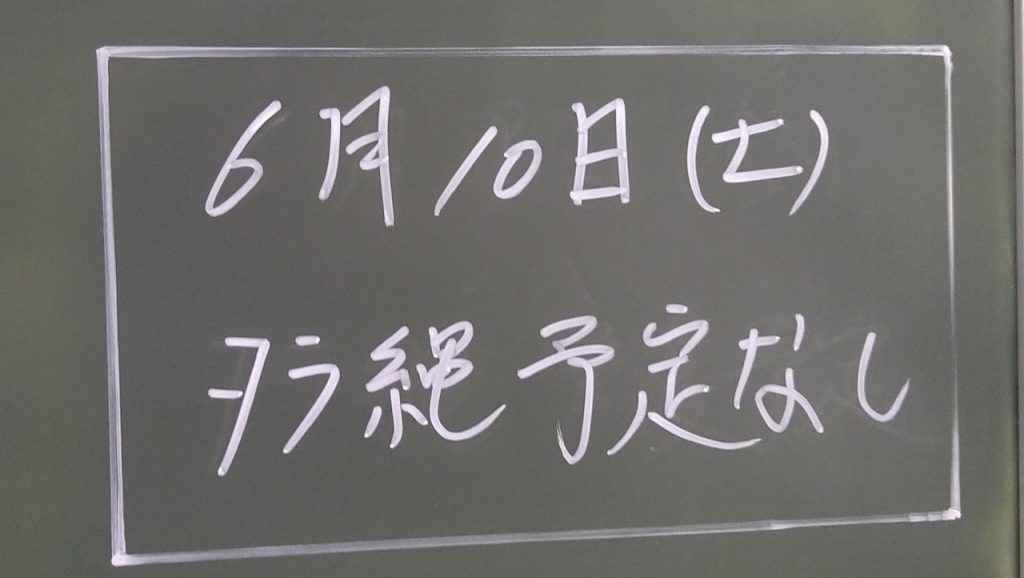 6月10日(土)
タラ縄 予定なし